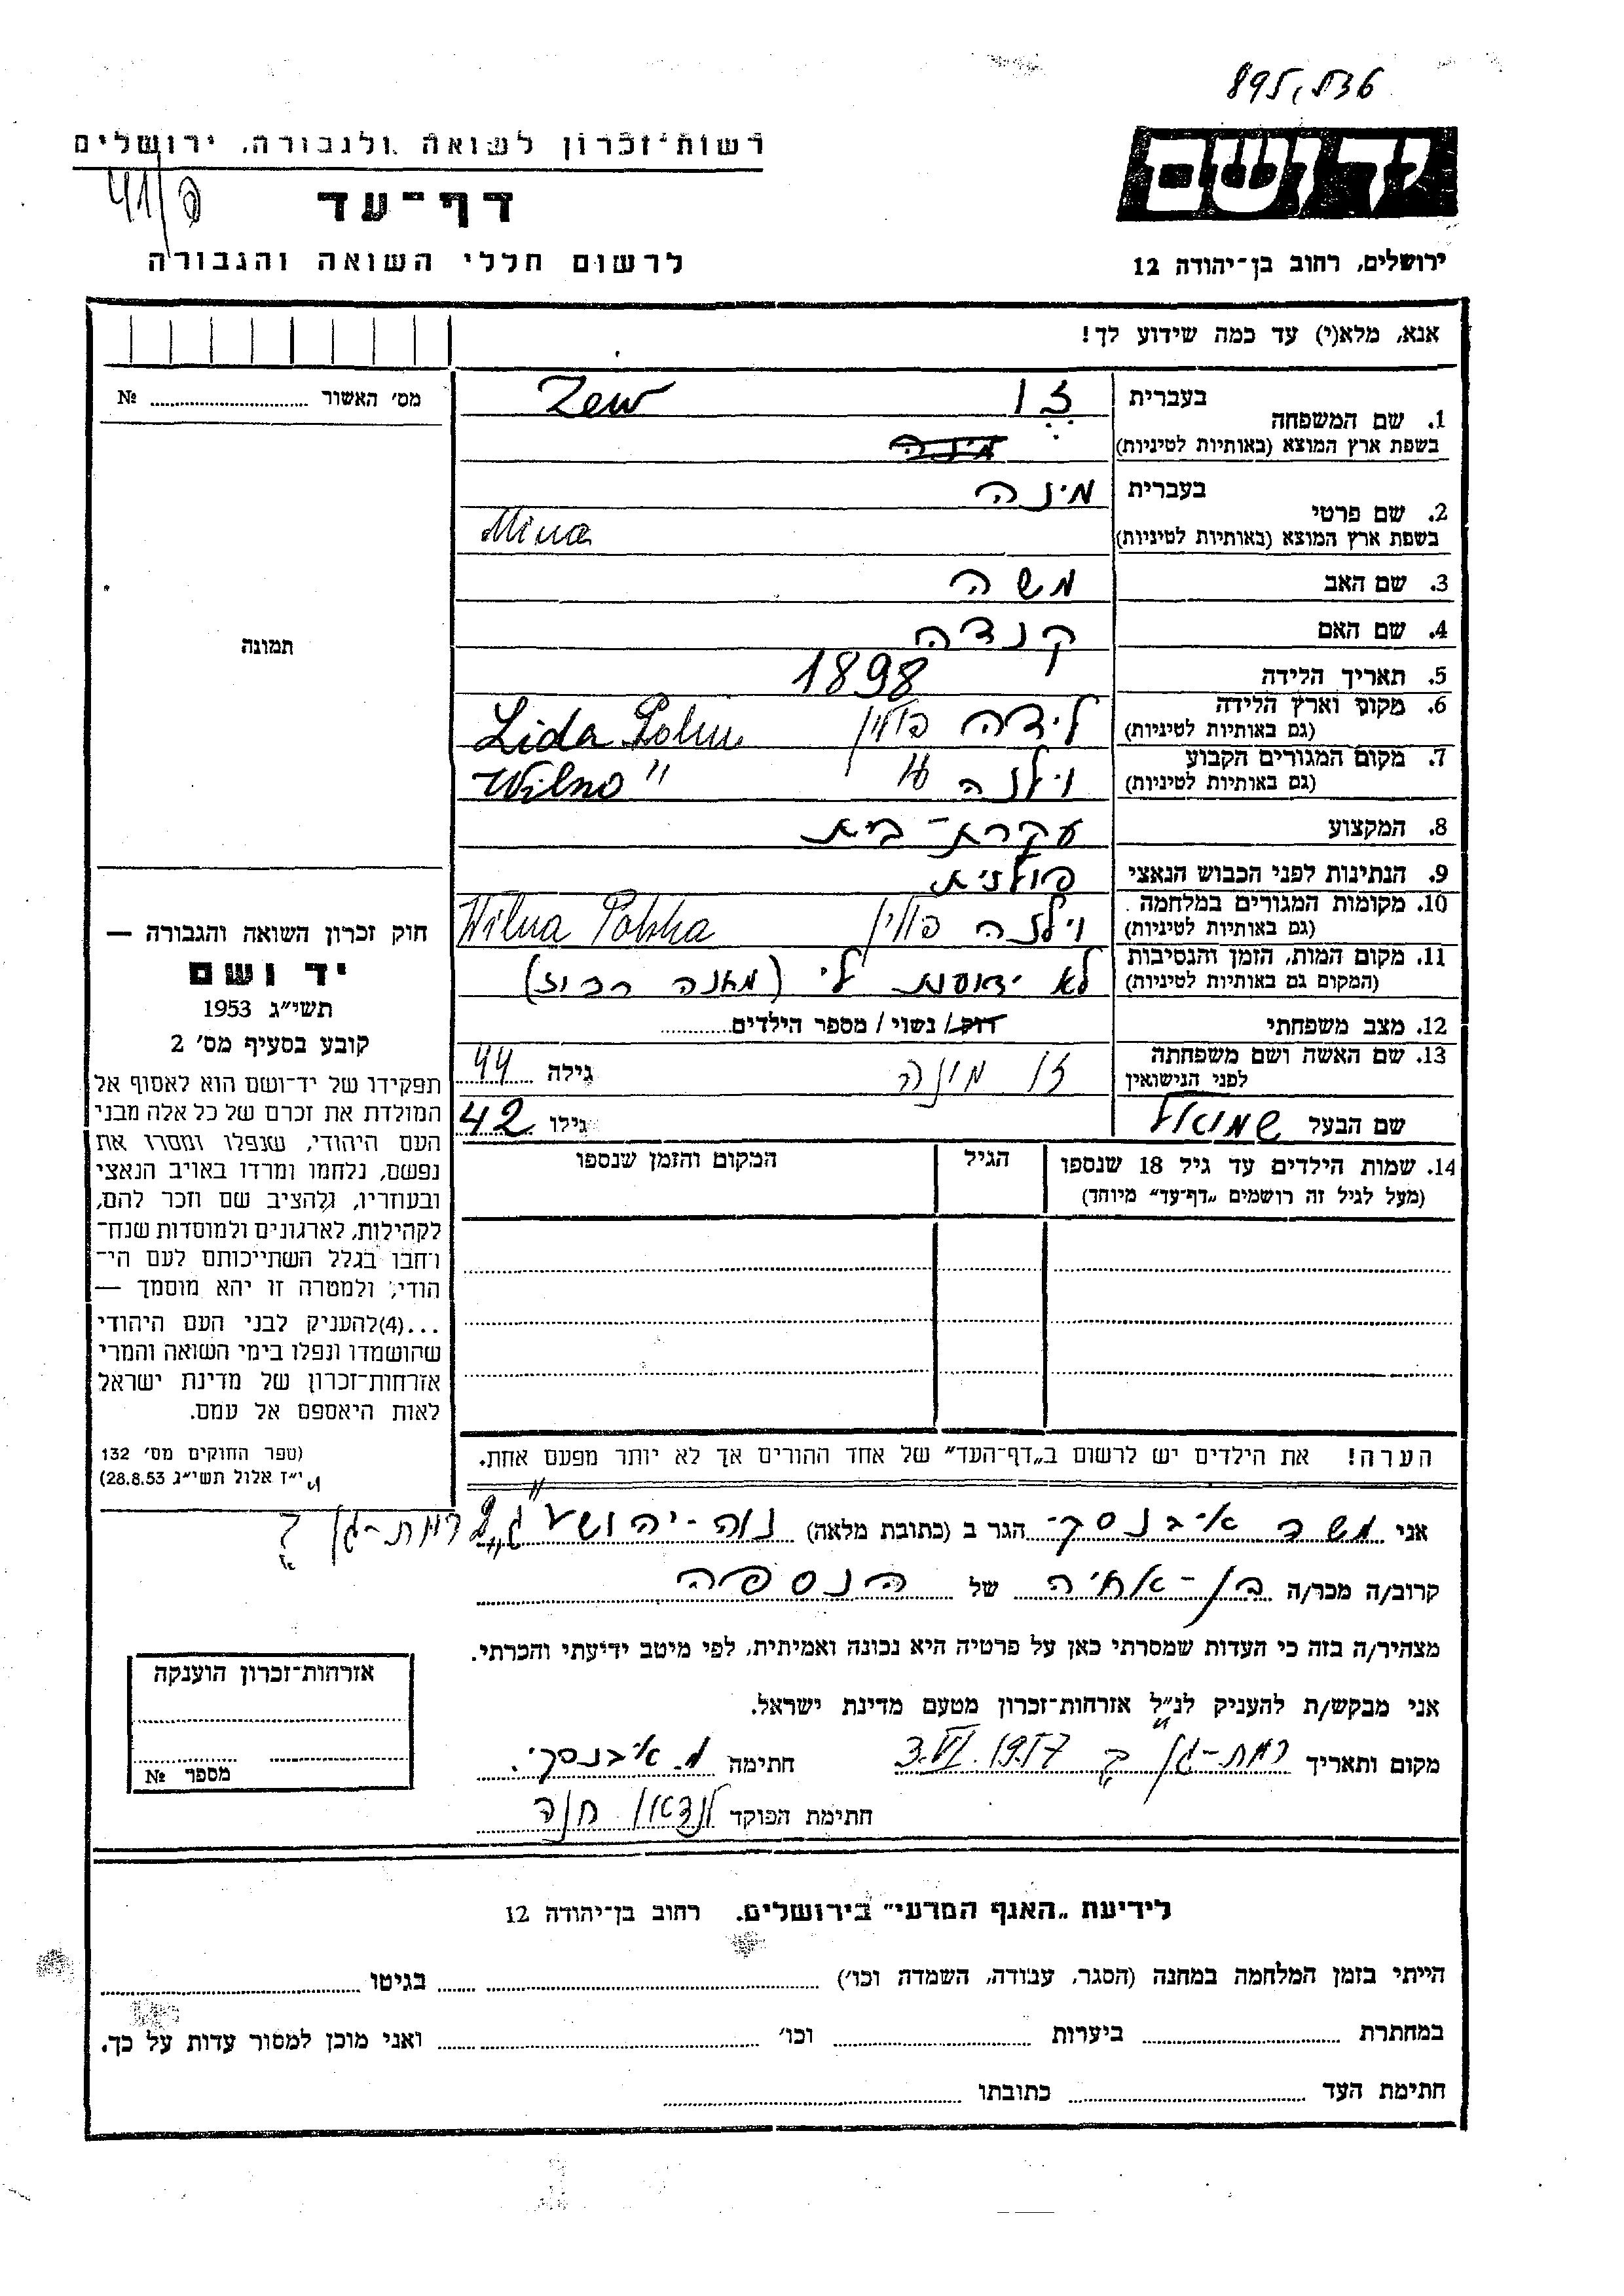 895, תבש
רשות־זכרון לשואה ולגבורה, ירושלים
יד ושם
41/
דף־עד
לרשום חללי השואה והגבורה
ירושלים, רחוב בן־יהודה 12
אנא, מלא(י) עד כמה שידוע לך!
מס׳ האשור ........ №
1. שם המשפחה בעברית זו Zew
בשפת ארץ המוצא (באותיות לטיניות) מינה
2. שם פרטי בעברית מינה
בשפת ארץ המוצא (באותיות לטיניות) Mina
3. שם האב משה
4. שם האם
תמונה
5. תאריך הלידה 1898
6. מקום וארץ הלידה לידה פולין Lida
(גם באותיות לטיניות)
7. מקום המגורים הקבוע וילנה " Wilno "
(גם באותיות לטיניות)
8. המקצוע עקרת־בית
9. הנתינות לפני הכבוש הנאצי פולנית
10. מקומות המגורים במלחמה וילנה פולין Wilna Polska
(גם באותיות לטיניות)
11. מקום המות, הזמן והנסיבות לא ידועות לי
(המקום גם באותיות לטיניות)
12. מצב משפחתי רווק / נשוי / מספר הילדים........
13. שם האשה ושם משפחתה זו גילה 44
לפני הנישואין
שם הבעל שמואל גילו 42
14. שמות הילדים עד גיל 18 שנספו הגיל המקום והזמן שנספו
(מעל לגיל זה רושמים „דף־עד״ מיוחד)
הערה! את הילדים יש לרשום ב„דף־העד״ של אחד ההורים אך לא יותר מפעם אחת.
חוק זכרון השואה והגבורה —
יד ושם
תשי״ג 1953
קובע בסעיף מס׳ 2
תפקידו של יד־ושם הוא לאסוף אל
המולדת את זכרם של כל אלה מבני
העם היהודי, שנפלו ומסרו את
נפשם, נלחמו ומרדו באויב הנאצי
ובעוזריו, ולהציב שם וזכר להם,
לקהילות, לארגונים ולמוסדות שנח־
רחבו בגלל השתייכותם לעם הי־
הודי; ולמטרה זו יהא מוסמך —
...(4)להעניק לבני העם היהודי
שהושמדו ונפלו בימי השואה והמרי
אזרחות־זכרון של מדינת ישראל
לאות היאספם אל עמם.
(ספר החוקים מס׳ 132
י״ז אלול תשי״ג 28.8.53)
אני משה איבנסקי הגר ב (כתובת מלאה) נוה־יהושע רמת־גן
קרוב/ה מכר/ה בן־אחיה של הנספה
מצהיר/ה בזה כי העדות שמסרתי כאן על פרטיה היא נכונה ואמיתית, לפי מיטב ידיעתי והכרתי.
אני מבקש/ת להעניק לנ״ל אזרחות־זכרון מטעם מדינת ישראל.
מקום ותאריך רמת־גן 3.VI.1957 חתימה מ. איבנסקי.
חתימת הפוקד לנדאו חנה
אזרחות־זכרון הוענקה
מספר №
לידיעת „האגף המדעי״ בירושלים. רחוב בן־יהודה 12
הייתי בזמן המלחמה במחנה (הסגר, עבודה, השמדה וכו׳) ........ בגיטו ........
במחתרת ........ ביערות ........ וכו׳ ........ ואני מוכן למסור עדות על כך.
חתימת העד ........ כתובתו ........